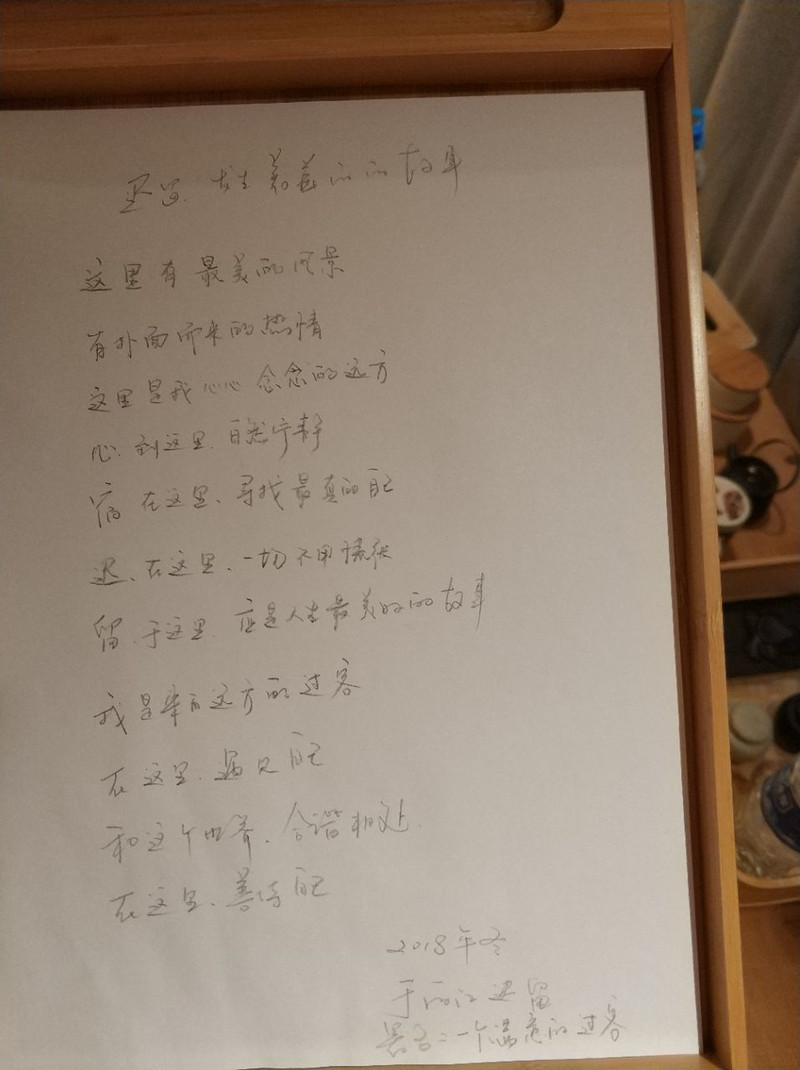 迟留. 发生着美丽的故事
这里有最美的风景
有扑面而来的热情
这里是我心心念念的远方
心.到这里.自然宁静
宿 在这里、寻找最真的自己
迟、在这里、一切不用慌张
留.于这里.应是人生最美好的故事
我是来自远方的过客
在这里.遇见自己
和这个世界.合谐相处.
在这里、善待自己
2018年冬
于丽江迟留
署名:一个满意的过客